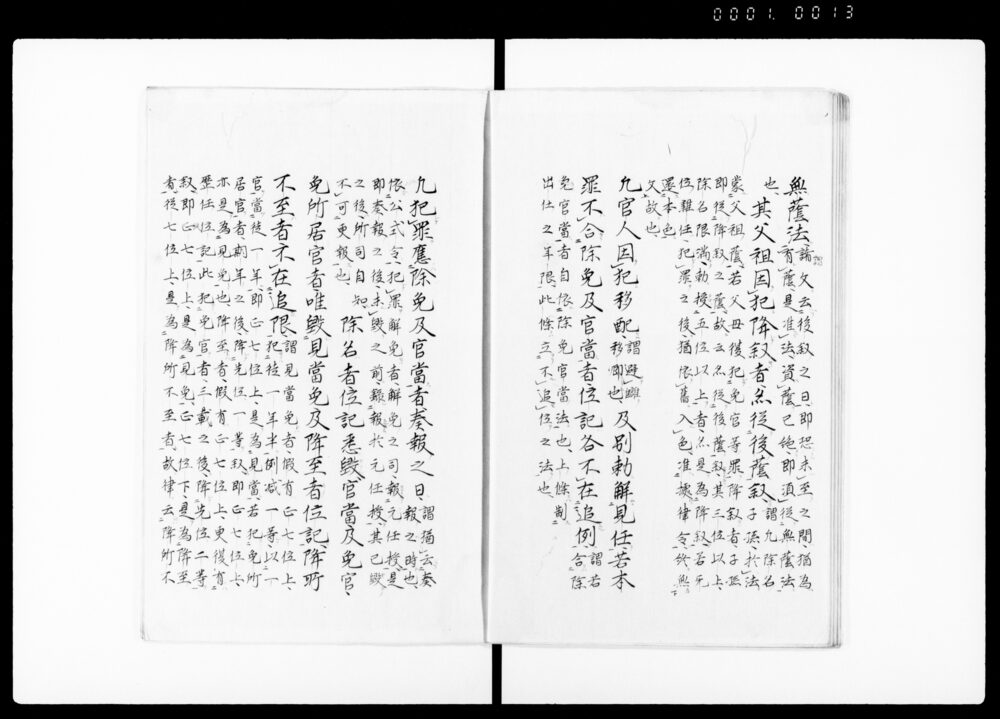 0001 0013
無蔭法、謂、父云、後叙之日、即恐未至之間、猶為
有蔭、是准法、資蔭已絶、即須後無蔭法
也、其父祖因犯降叙者、亦従後蔭叙、謂凡除名
子孫、於法
蒙父祖蔭、若父母後犯免官等罪降叙者、子孫
即従降叙之蔭、故云亦従後蔭叙、其三位以上、
除名限満、勅授五位以上者、亦是為降叙、若死
位雖任、犯罪之後、猶依舊入色、准據律令、終無
還本色、
文故也、
凡官人因犯移配、謂避
移即也、及別勅解見任、若本
罪不合除免及官當者、位記各不在追例、謂若
合除
免官當者、自依除免官當法也、上條制
出仕之年限、此條立不追位之法也、
凡犯罪應除免及官當者、奏報之日、謂猶云奏
報之時也、
依公式令、犯罪解免者、解免之司、報元任授、是
即奏報之後、未毀之前、雖報於元任授、其已毀
之後、所司自知、
不可更報也、除名者、位記悉毀、官當及免官、
免所居官者、唯毀見當免及降至者位記、降所
不至者、不在追限、謂見當免者、假有正七位上、
犯徒一年半、例减一等、以一
官當徒一年、即正七位上、是為見當、若犯免所
居官者、期年之後、降先位一等叙、即正七位上、
亦是為見免也、降至者、假有正七位上、更復有
歴任位記、此犯免官者、三載之後、降先位二等
叙、即正七位上、是為見免、正七位下、是為降至
者、従七位上、是為降所不至者、故律云、降所不